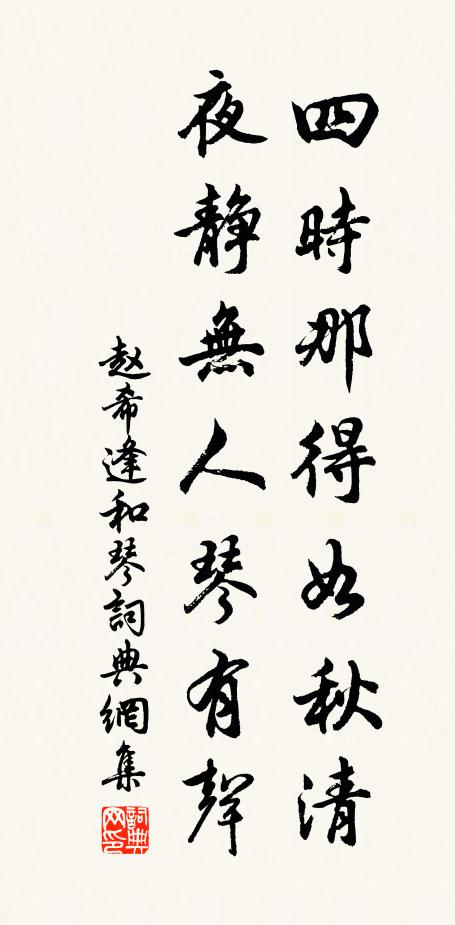 四時那得如秋清
夜靜無人琴有聲
赵希逢和琴詞典網集
詞典
网印